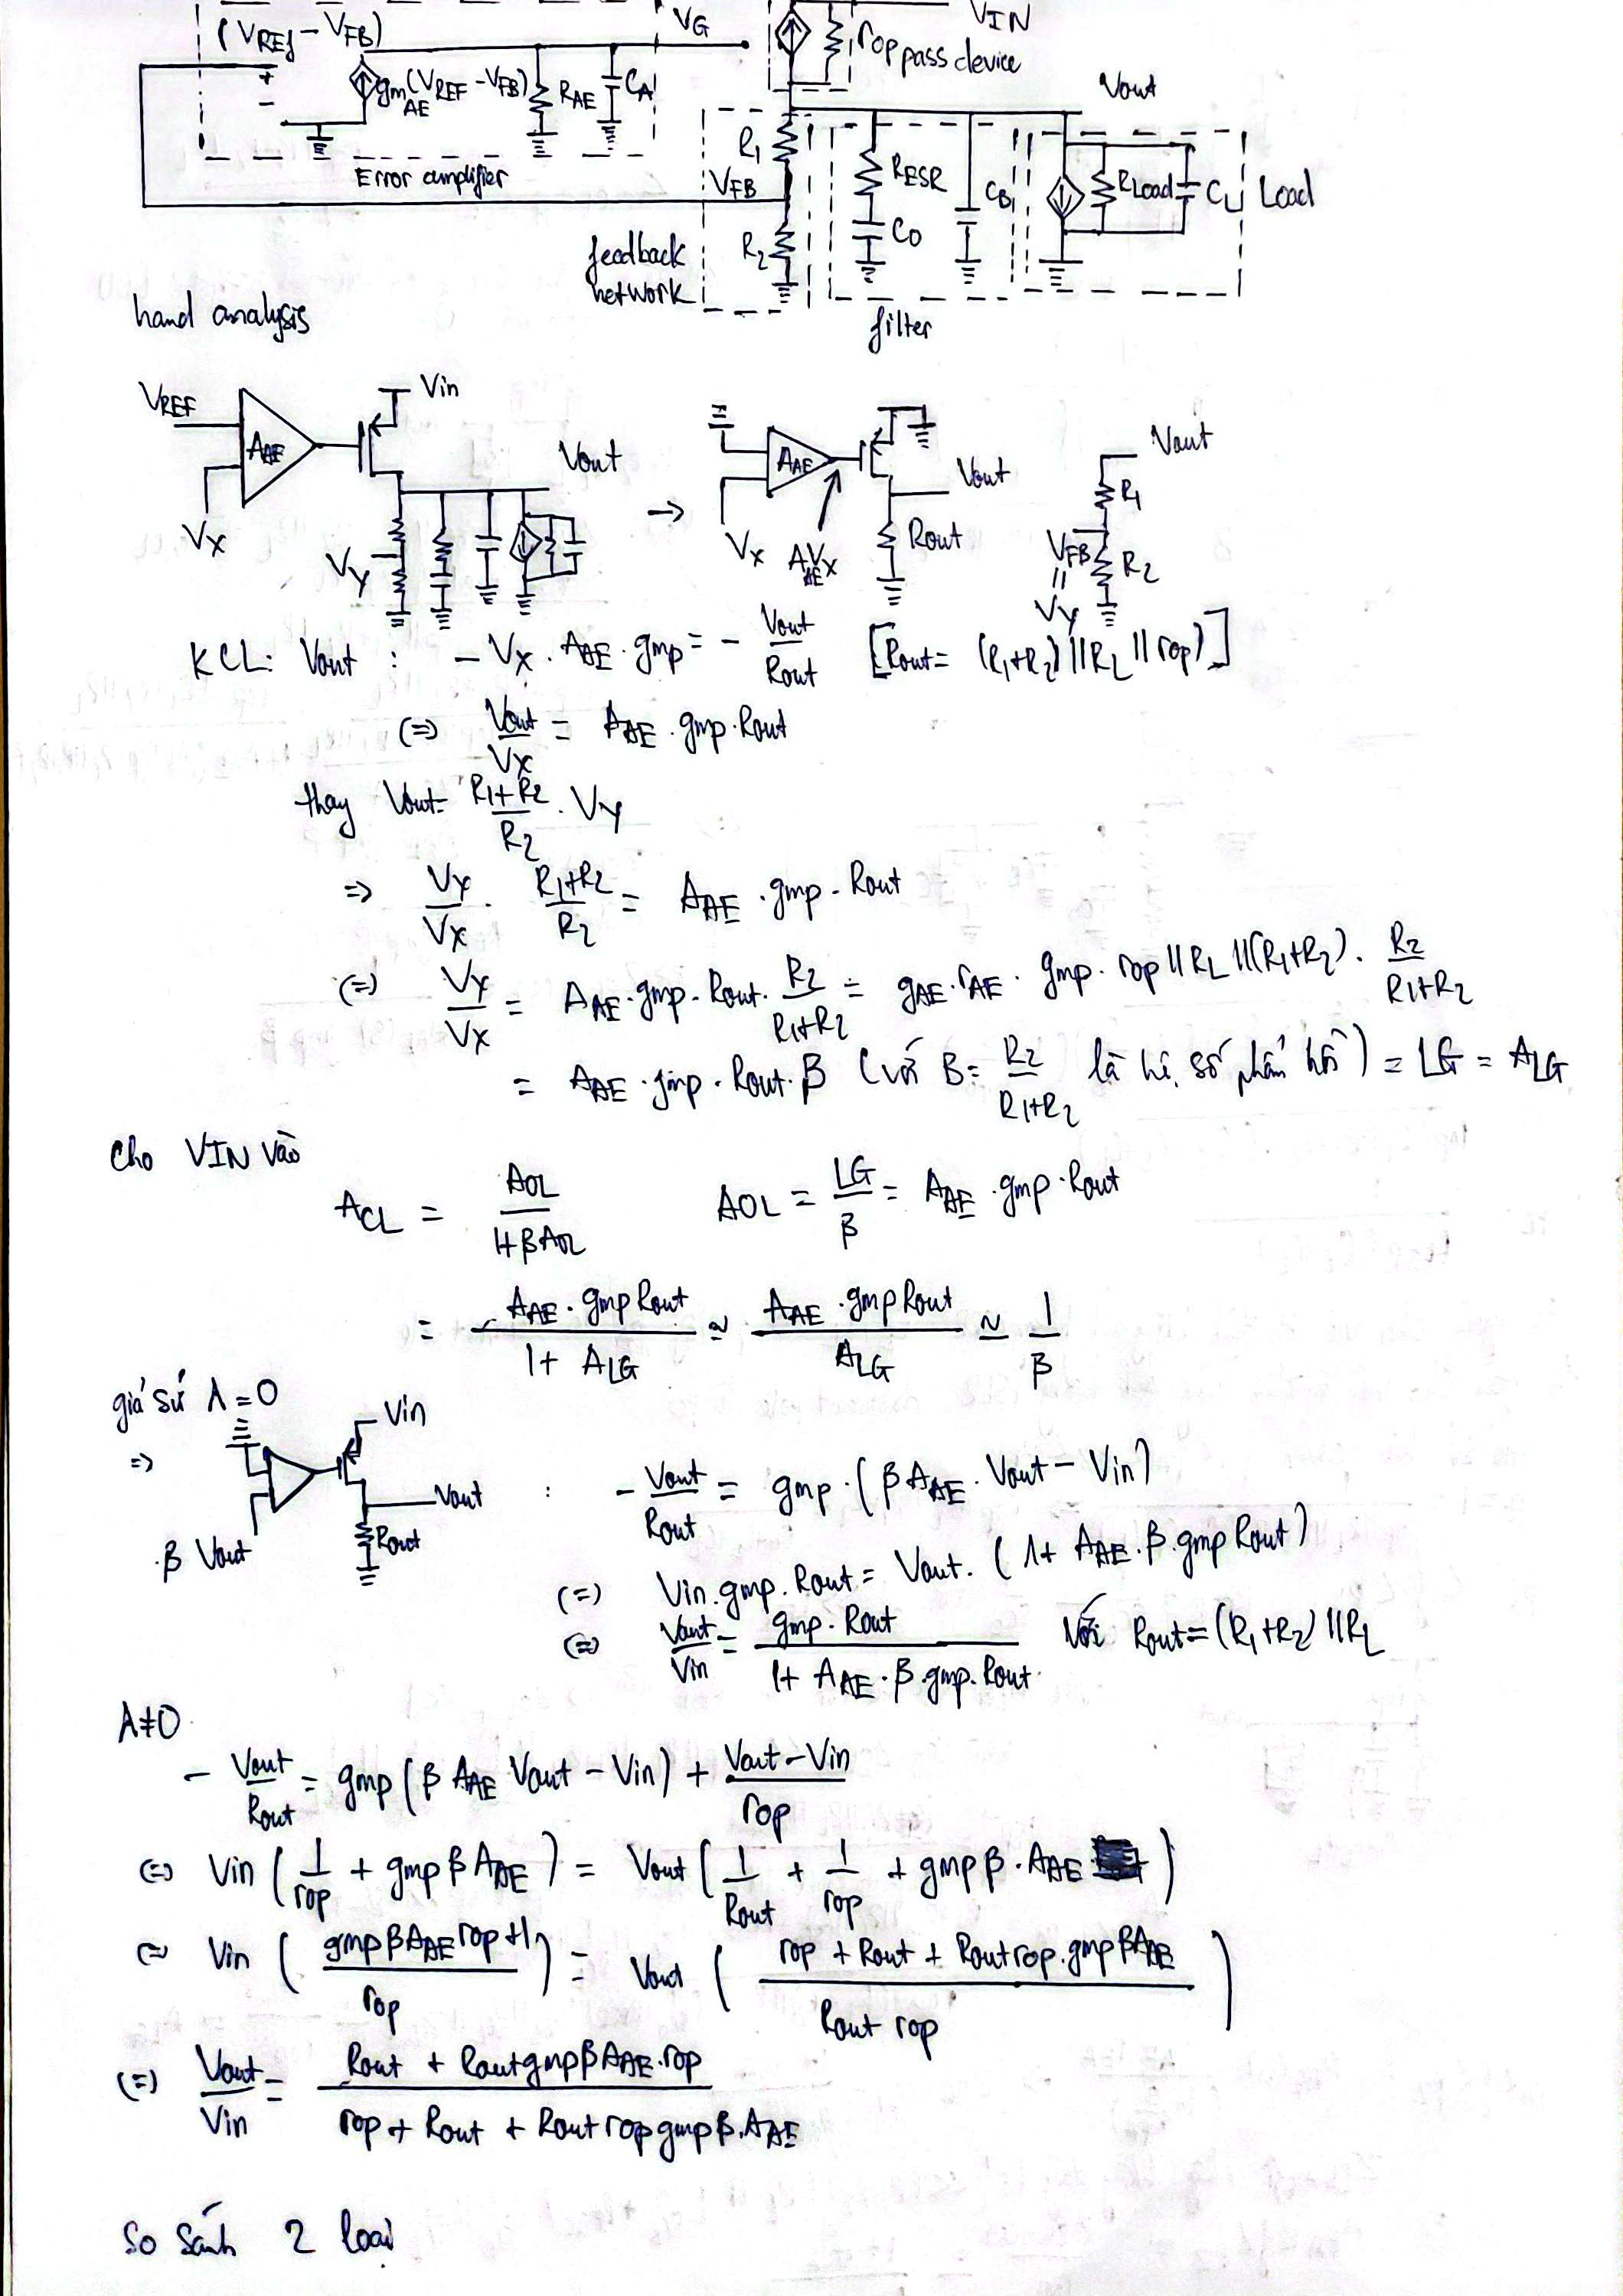 (VREf - VFB)
VG
VIN
rop pass device
+
-
gmAE(VREF - VFB)
RAE
CA
Vout
R1
RESR
CB
RLoad
CL
Load
Error amplifier
VFB
CO
R2
feedback network
filter
hand analysis
VREF
AAE
Vin
Vout
VX
VY
→
AAE
VX
AAEVX
Vout
Rout
Vout
R1
VFB
R2
=
VY
KCL: Vout : - VX . AAE . gmp = - Vout/Rout [Rout = (R1+R2) || RL || rop)]
(=) Vout/VX = AAE . gmp . Rout
thay Vout = (R1+R2)/R2 . VY
=> VY/VX . (R1+R2)/R2 = AAE . gmp . Rout
(=) VY/VX = AAE . gmp . Rout . R2/(R1+R2) = gAE . rAE . gmp . rop || RL || (R1+R2) . R2/(R1+R2)
= AAE . gmp . Rout . β (với B = R2/(R1+R2) là hệ số phản hồi) = LG = ALG
Cho VIN vào
ACL = AOL/(1+βAOL) AOL = LG/β = AAE . gmp . Rout
= AAE . gmp Rout/(1 + ALG) ≃ AAE . gmp Rout/ALG ≃ 1/β
giả sử λ = 0
=>
Vin
Vout
Rout
β Vout
: - Vout/Rout = gmp . (β AAE . Vout - Vin)
(=) Vin . gmp . Rout = Vout . (1 + AAE . β . gmp Rout)
(=) Vout/Vin = gmp . Rout/(1 + AAE . β . gmp . Rout) Với Rout = (R1+R2) || RL
λ≠0
- Vout/Rout = gmp (β AAE Vout - Vin) + (Vout - Vin)/rop
(=) Vin (1/rop + gmp β AAE) = Vout (1/Rout + 1/rop + gmp β . AAE)
(=) Vin ((gmp β AAE rop + 1)/rop) = Vout ((rop + Rout + Rout rop . gmp β AAE)/(Rout rop))
(=) Vout/Vin = (Rout + Rout gmp β AAE . rop)/(rop + Rout + Rout rop gmp β . AAE)
So sánh 2 loại